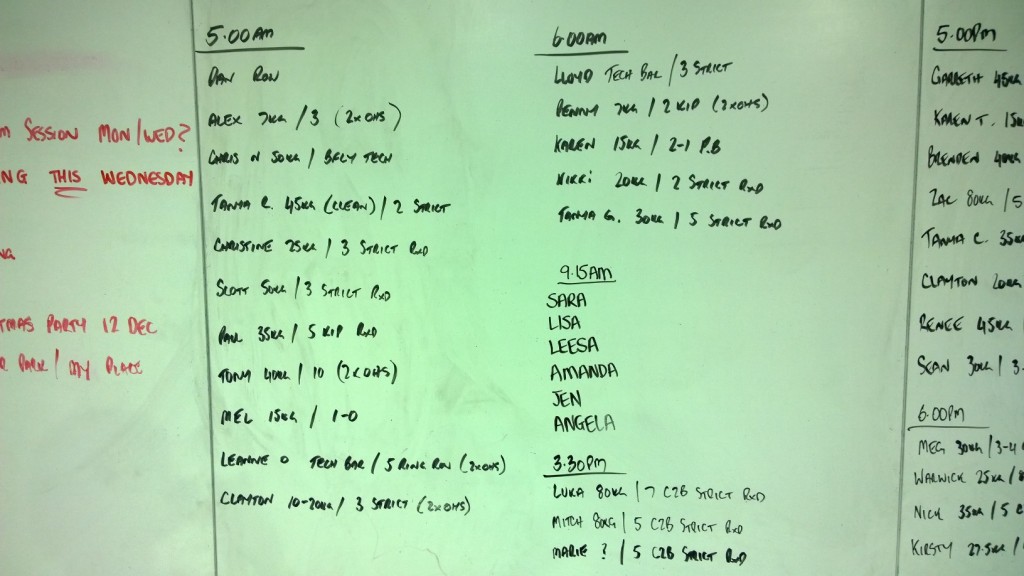 SESSION MON/WED?
NG THIS WEDNESDAY
TMAS PARTY 12 DEC
PARK / MY PLACE
5.00AM
DAN ROW
ALEX 7KG / 3 (2xOHS)
CHRIS N 50KG / BFLY TECH
TANYA C. 45KG (CLEAN) / 2 STRICT
CHRISTINE 25KG / 3 STRICT RxD
SCOTT 50KG / 3 STRICT RxD
PAUL 35KG / 5 KIP RxD
TONY 40KG / 10 (2xOHS)
MEL 15KG / 1-0
LEANNE O TECH BAR / 5 RING ROW (2xOHS)
CLAYTON 10-20KG / 3 STRICT (2xOHS)
6.00AM
LLOYD TECH BAR / 3 STRICT
PENNY 7KG / 2 KIP (2xOHS)
KAREN 15KG / 2-1 P.B
NIKKI 20KG / 2 STRICT RxD
TANYA G. 30KG / 5 STRICT RxD
9.15AM
SARA
LISA
LEESA
AMANDA
JEN
ANGELA
3.30PM
LUKA 80KG / 7 C2B STRICT RxD
MITCH 80KG / 5 C2B STRICT RxD
MARIE ? / 5 C2B STRICT RxD
5.00PM
GARRETH 45KG
KAREN T. 15KG
BRENDEN 40KG
ZAC 80KG / 5
TANYA C. 35KG
CLAYTON 20KG
RENEE 45KG
SEAN 30KG / 3
6.00PM
MEG 30KG / 3-4
WARWICK 25KG /
NICK 35KG / 5
KIRSTY 27.5KG /